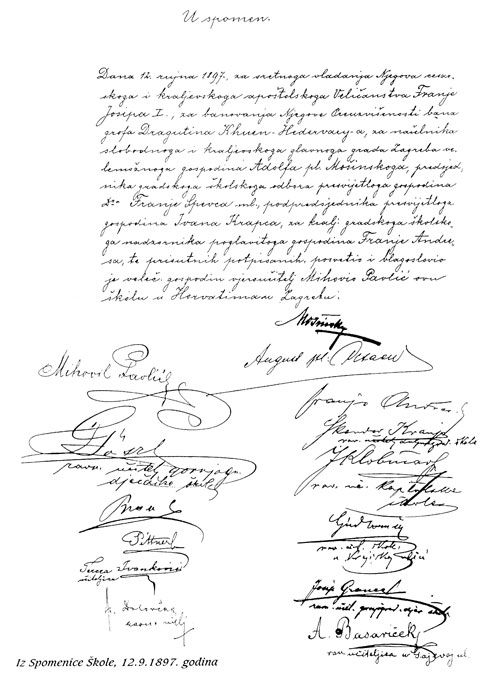 U spomen.
Dana 12. rujna 1897. za sretnoga vladanja Njegova cesar-
skoga i kraljevskoga apoštolskoga Veličanstva Franje
Josipa I., za banovanja Njegove Preuzvišenosti bana
grofa Dragutina Khuen-Hedervary-a, za načelnika
slobodnoga i kraljevskoga glavnoga grada Zagreba ve-
lemožnoga gospodina Adolfa pl. Mošinskoga, predsjed-
nika gradskoga školskoga odbora presvijetloga gospodina
Dra Franje Spevca ml., podpredsjednika presvijetloga
gospodina Ivana Krapca, za kralj. gradskoga školsko-
ga nadzornika poglavitoga gospodina Franje Andre-
sa, te prisutnih potpisanih, posvetio i blagoslovio
je veleč. gospodin vjeroučitelj Mihovio Pavlić ovu
školu u Horvatima u Zagrebu.
Mošinsky
Mihovil Pavlić
August pl.
Franjo
škole
rav. učitelj
dječačke škole
Pittner
Tereza Ivanković
učiteljica
Josip
A. Basariček
rav. učiteljica u Gajevoj ul.
Iz Spomenice Škole, 12.9.1897. godina